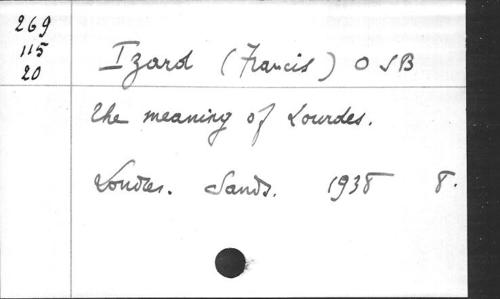 269
115
20
Izard (Francis) OSB
The meaning of Lourdes.
Londres. Sands. 1938 8.